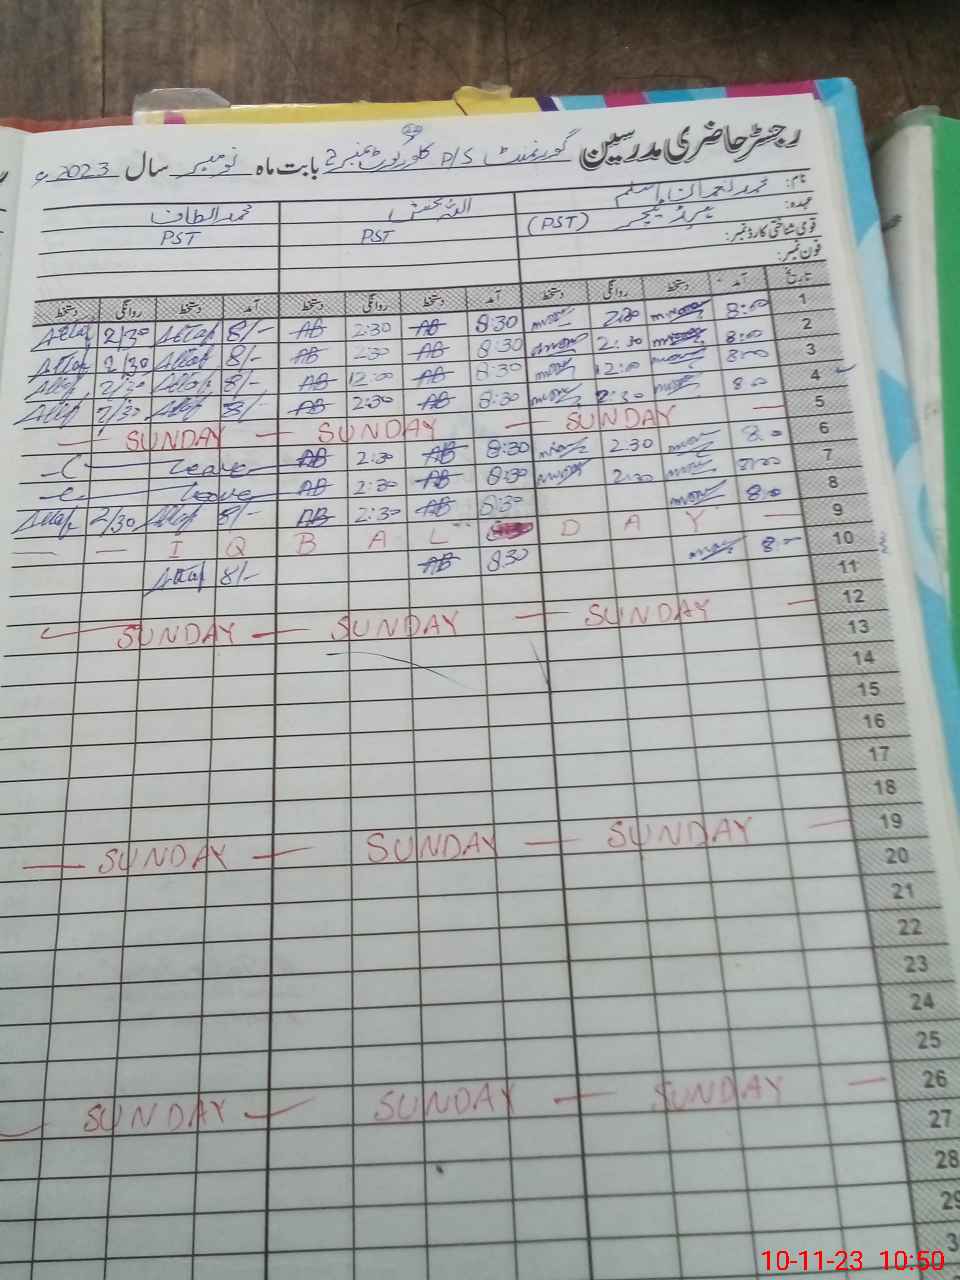 رجسٹر حاضری مدرسین گورنمنٹ P/S کلورکوٹ نمبر 2 بابت ماہ نومبر سال 2023ء
نام: محمد نعمان اسلم اللہ بخش محمد الطاف
عہدہ: ہیڈ ٹیچر (PST) PST PST
قومی شناختی کارڈ نمبر:
فون نمبر:
تاریخ آمد دستخط روانگی دستخط آمد دستخط روانگی دستخط آمد دستخط روانگی دستخط
1 8:00 2:30 8:30 AB 2:30 AB 8/- Altaf 2/30 Altaf
2 8:00 2:30 8:30 AB 2:30 AB 8/- Altaf 2/30 Altaf
3 8:00 12:00 8:30 AB 12:00 AB 8/- Altaf Altaf
4 8:00 2:30 8:30 AB 2:30 AB 8/- Altaf 2/30 Altaf
5 — SUNDAY — SUNDAY — SUNDAY —
6 8:00 2:30 8:30 AB 2:30 AB — C — Leave
7 8:00 2:30 8:30 AB 2:30 AB — C — Leave
8 8:00 8:30 AB 2:30 AB 8/- Altaf 2/30 Altaf
9 — — I Q B A L D A Y —
10 8:00 8:30 AB 8/- Altaf
11
12 — SUNDAY — SUNDAY — SUNDAY —
13
14
15
16
17
18
19 — SUNDAY — SUNDAY — SUNDAY —
20
21
22
23
24
25
26 — SUNDAY — SUNDAY — SUNDAY —
27
28
29
10-11-23 10:50